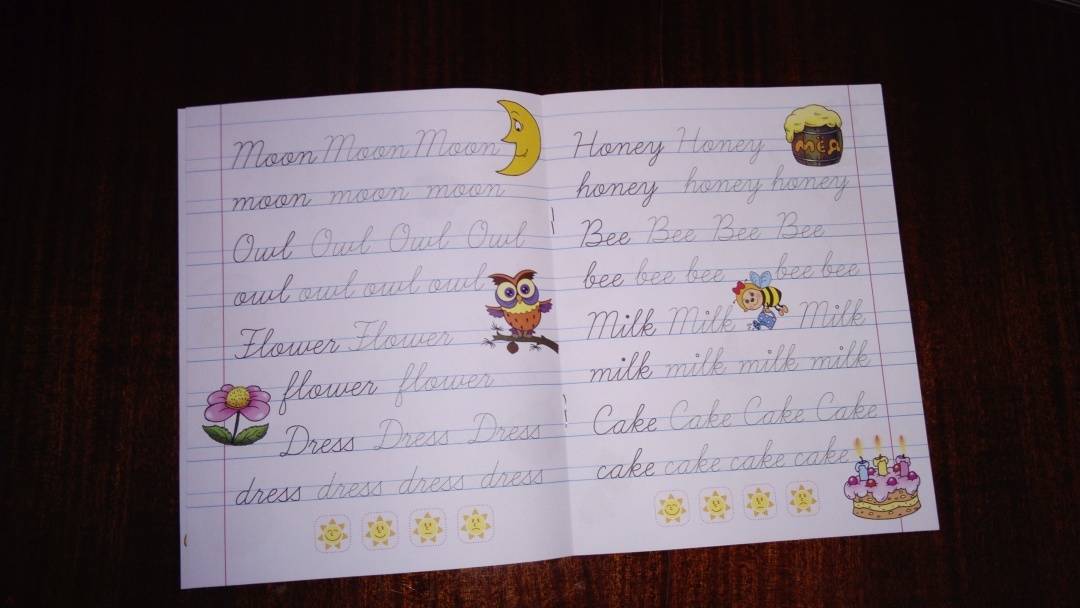 Moon Moon Moon
moon moon moon
Owl Owl Owl Owl
owl owl owl owl
Flower Flower
flower flower
Dress Dress Dress
dress dress dress dress
Honey Honey
МЁД
honey honey honey
Bee Bee Bee Bee
bee bee bee bee bee
Milk Milk Milk
milk milk milk milk
Cake Cake Cake Cake
cake cake cake cake